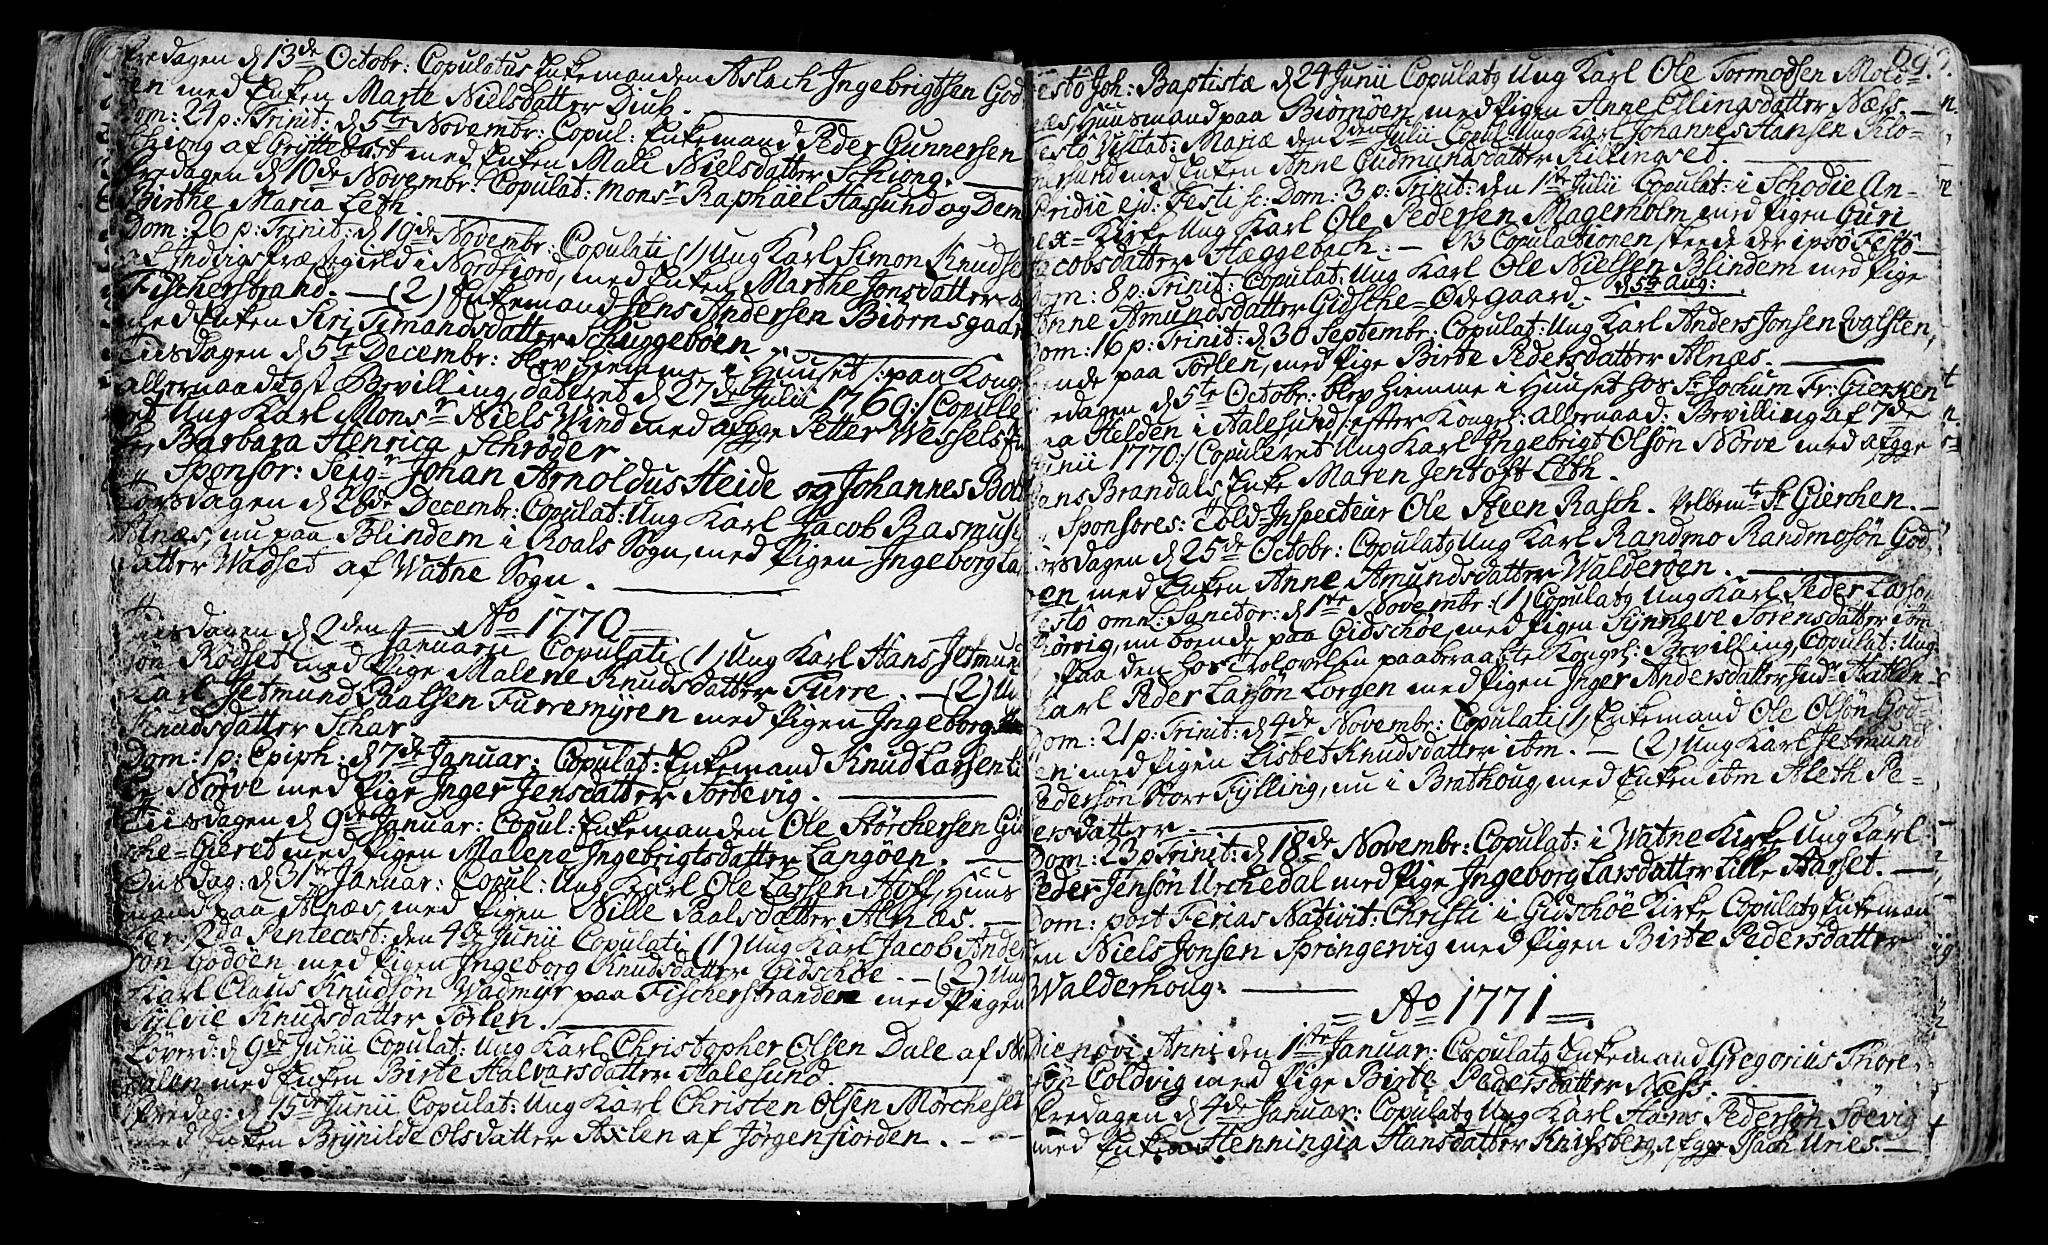 Fredagen d 13de Octobr: Copulatus Enkemanden Aslach Ingebrigtsen God
øen med Enken Marte Nielsdatter Diub.
Dom: 24 p: Trinit: d 5te Novembr: Copul: Enkemand Peder Gunnersen
Schiong af Gryttebust med Enken Mali Nielsdatter Schiong.
Fredagen d 10de Novembr: Copulat: Monsr Raphäel Hasund og Dem
Birthe Maria Leth
Dom: 26 p: Trinit: d 19de Novembr: Copulati (1) Ung Karl Simon Knudse
Indvigs præstegield i Nordfiord, med Enken Marthe Jonsdatter
Fischersbrand. — (2) Enkemand Jens Andersen Biørnsgaar
med Enken Siri Timandsdatter Schuggebøen
Tiisdagen d 5te Decembr: blev hiemme i Huuset /: paa Kong
allernaadigst Bevilling, dateret d 27de Julii 1769 :/ Copule
ret Ung Karl Monsr Niels Wind med afgge Petter Wessels En
ke Barbara Henrica Schrøder.
Sponsor: Seigr Johan Arnoldus Heide og Johannes Bot
Torsdagen d 28de Decembr: Copulat: Ung Karl Jacob Rasmus
Alnæs, nu paa Blindem i Roals Sogn, med Pigen Ingeborg La
datter Wadset af Watne Sogn.
= Ao 1770 =
Tiisdagen d 2den Januarii Copulati (1) Ung Karl Hans Jetmun
søn Rødset med Pige Malene Knudsdatter Furre. — (2) U
Karl Jetmund Paalsen Furremyren med Pigen Ingeborg
Knudsdatter Schar
Dom: 1 p: Epiph: d 7de Januar: Copulat: Enkemand Knud Larsen
Nørve med Pige Inger Jensdatter Tordevig.
Tiisdagen d 9de Januar: Copul: Enkemanden Ole Størchersen Gi
sche-Gieret med Pigen Malene Ingebrigtsdatter Langøen.
Onsdag: d 31te Januar: Copul: Ung Karl Ole Larsen Hoff, Huus
mand paa Alnæs, med Pigen Nille Paalsdatter Alnæs. —
Fer: 2da Pentecost: den 4de Junii Copulati (1) Ung Karl Jacob Ander
søn Godøen med Pigen Ingeborg Knudsdatter Gidschøe. — (2) Ung
Karl Claus Knudsøn Wadmyr paa Fischerstranden med Pigen
Sylvie Knudsdatter Tørlen.
Løverd: d 9de Junii Copulat: Ung Karl Christopher Olsen Dale af N
dalen med Enken Birte Halvarsdatter Aalesund
Fredag: d 15de Junii Copulat: Ung Karl Christen Olsen Mørcheset
med Enken Brynilde Olsdatter Axlen af Jørgenfiorden. —
69.
Festo Joh: Baptistæ d 24 Junii Copulatg Ung Karl Ole Tormodsen Molo
næs, Huusmand paa Biørnøen, med Pigen Anne Ellingsdatter Næss. —
Festo Visitat: Mariæ den 2den Julii Copul: Ung Karl Johannes Hansen
med Enken Anne Gudmundsdatter Killingset.
Pridie ejd: Festi sc: Dom: 3 p: Trinit: den 1te Julii Copulat: i Schodie An-
nex-Kirke Ung Karl Ole Pedersen Magerholm med Pigen Guri
Jacobsdatter Hæggebach. — NB Copulationen skeede der ipso Festo
Dom: 8 p: Trinit: Copulat: Ung Karl Ole Nielsen Blindem med Pige
Anne Amundsdatter Gidsche-Ødegaard. d 5te Aug:
Dom: 16 p: Trinit: d 30 Septembr: Copulat: Ung Karl Anders Jonsen Walsten,
paa Tørlen, med Pige Birte Pedersdatter Alnæs.
Fredagen d 5te Octobr: blev hiemme i Huuset hos Sr Jochum Fr: Giersen
paa Helden i Aalesund /: efter Kongel: allernaad: Bevilling af 7de
Junii 1770 :/ Copuleret Ung Karl Ingebrigt Olsøn Nørve med afgge
Hans Brandals Enke Maren Jentoft Leth.
Sponsores: Told-Inspecteur Ole Aeen Rasch. Velbemte Sr Gierchen. —
Torsdagen d 25de Octobr: Copulatg Ung Karl Randmo Randmosøn God
øen med Enken Anne Amundsdatter Walderøen.
Festo omn: Sanctor: d 1te Novembr: (1) Copulatg Ung Karl Peder Larsøn
nu boende paa Gidschøe, med Pigen Synneve Sørensdatter ibm
Paa den hos Trolovelsen paaberaabte Kongel: Bevilling, Copulat: Ung
Karl Peder Larsøn Lorgen med Pigen Inger Andersdatter
Dom: 21 p: Trinit: d 4de Novembr: Copulati (1) Enkemand Ole Olsøn God
øen med Pigen Lisbet Knudsdatter ibm. — (2) Ung Karl Jetmund
Pedersøn Store Fylling, nu i Brathoug, med Enken ibm Aleth Pe-
dersdatter.
Dom: 23 p Trinit: d 18de Novembr: Copulat: i Watne Kirke Ung Karl
Peder Jensøn Urchedal med Pige Ingeborg Larsdatter Lille Aarset. —
Dom: post Ferias Nativit: Christi i Gidschøe Kirke Copulatg Enkeman
den Niels Jonsen Springervig med Pigen Birte Pedersdatter
Walderhoug.
= Ao 1771 =
Die novi Anni den 1te Januar: Copulatg Enkemand Gregorius Thore
søn Coldvig med Pige Birte Pedersdatter Næss.
Fredagen d 4de Januar: Copulatg Ung Karl Hans Pedersøn Søevig
med Enken Henningia Hansdatter Knifsberg, afgge Isach Uries. —